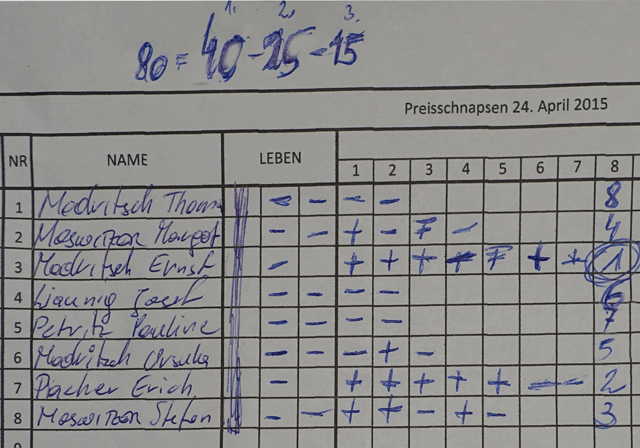 1. 2. 3.
80 = 40 - 25 - 15
Preisschnapsen 24. April 2015
NR NAME LEBEN 1 2 3 4 5 6 7 8
1 Madritsch Thom - - - - 8
2 Moswitzer Margot - - + - F - 4
3 Madritsch Ernst - + + + + F + + 1
4 Josef - - - - 6
5 Petritz Pauline - - - - 7
6 Madritsch Ursula - - - + - 5
7 Pacher Erich - + + + + + - - 2
8 Moswitzer Stefan - - + + - + - 3